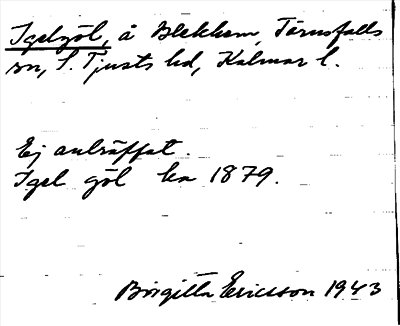 Igelgöl, å Blekhem, Törnsfalls
sn, S. Tjusts hd, Kalmar l.
Ej anträffat.
Igel göl ka 1879.
Birgitta Ericsson 1943